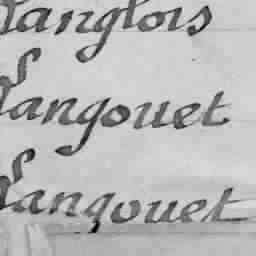 Langlois
Langouet
Langouet